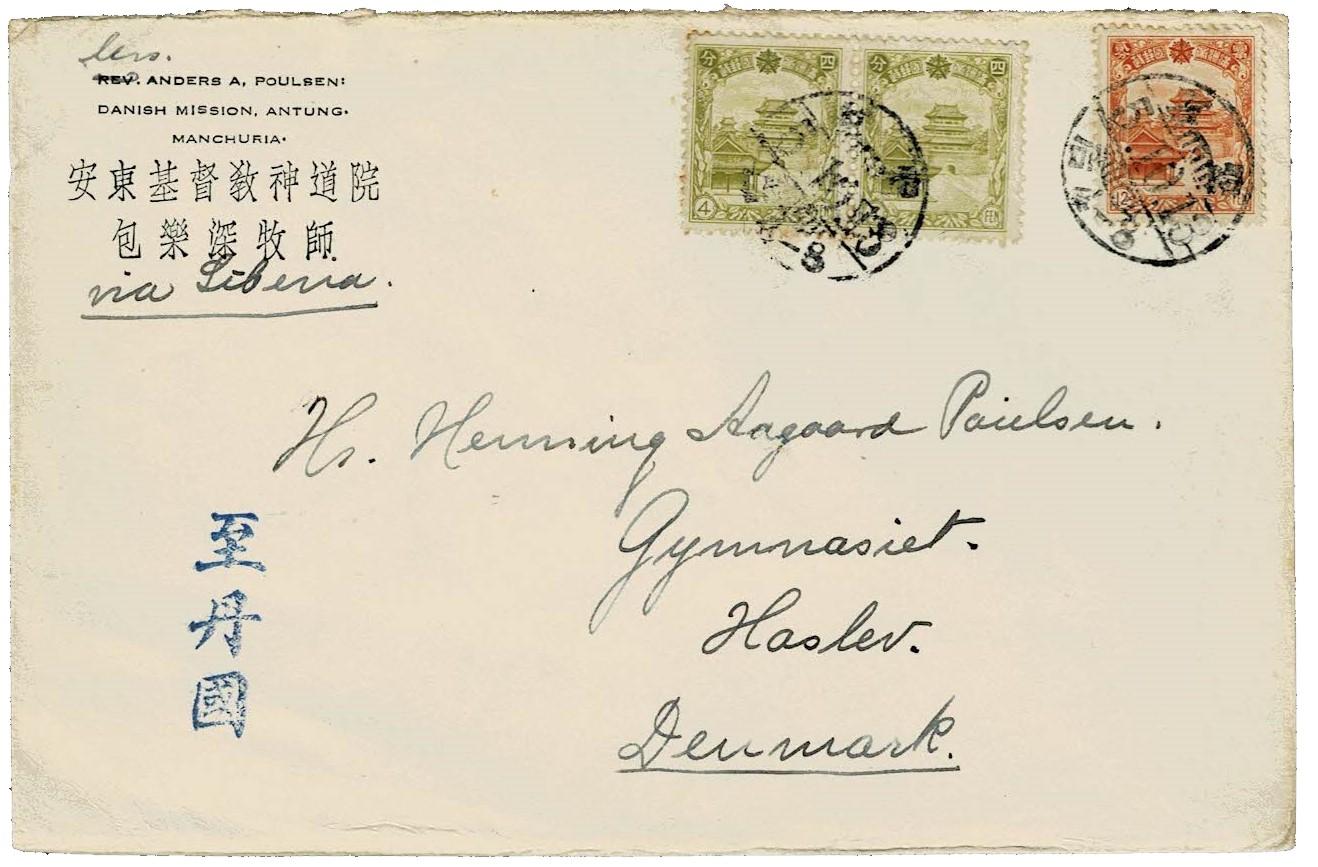 Mrs.
REV. ANDERS A, POULSEN:
DANISH MISSION, ANTUNG.
MANCHURIA.
安東基督教神道院
包樂深牧師.
via Siberia.
分 四
分 四
4
FEN
Hr. Henning Aagaard Poulsen.
Gymnasiet.
Haslev.
Denmark.
至丹國